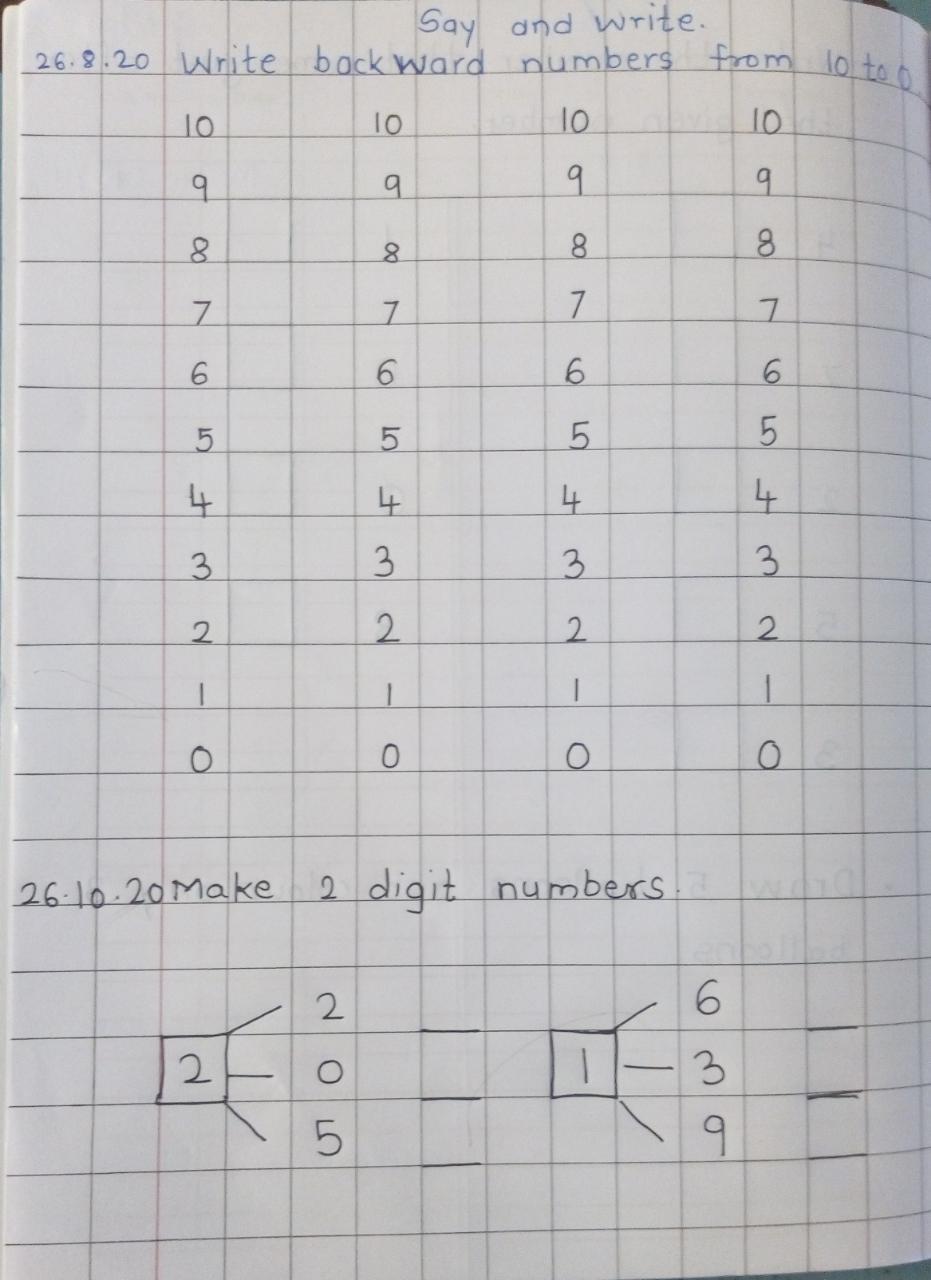 Say and write.
26.8.20 Write backward numbers from 10 to 0
10 10 10 10
9 9 9 9
8 8 8 8
7 7 7 7
6 6 6 6
5 5 5 5
4 4 4 4
3 3 3 3
2 2 2 2
1 1 1 1
0 0 0 0
26.10.20 Make 2 digit numbers.
2 6
2 0 1 3
5 9